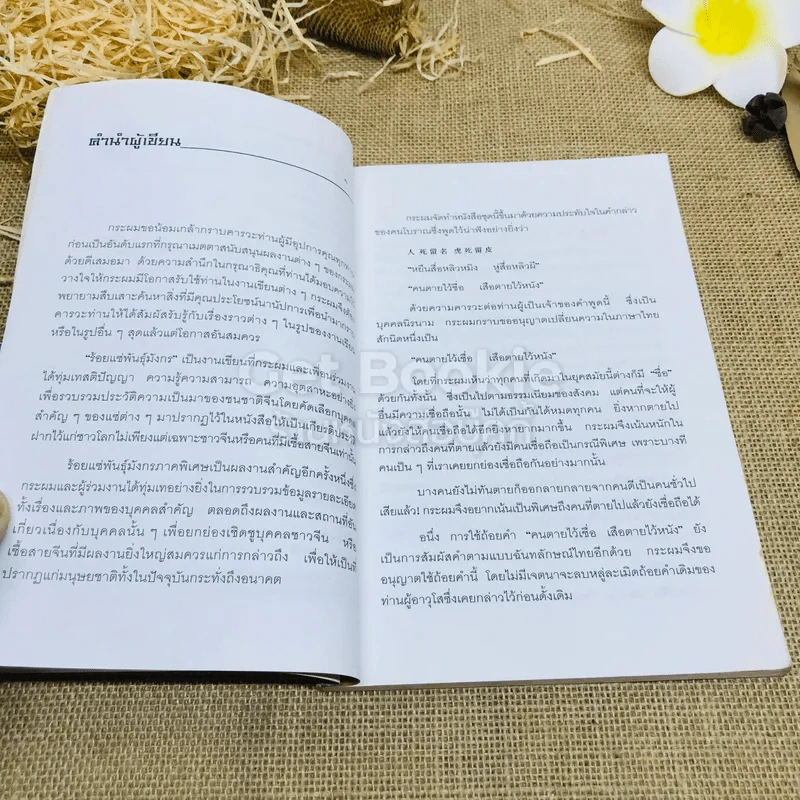 คำนำผู้เขียน
กระผมขอน้อมเกล้ากราบคารวะท่านผู้มีอุปการคุณทุกท่าน
ก่อนเป็นอันดับแรกที่กรุณาเมตตาสนับสนุนผลงานต่าง ๆ ของกระผม
ด้วยดีเสมอมา ด้วยความสำนึกในกรุณาธิคุณที่ท่านได้มอบความ
วางใจให้กระผมมีโอกาสรับใช้ท่านในงานเขียนต่าง ๆ กระผมจึง
พยายามสืบเสาะค้นหาสิ่งที่มีคุณประโยชน์นานัปการเพื่อนำมา
คารวะท่านให้ได้สัมผัสรับรู้กับเรื่องราวต่าง ๆ ในรูปของงานเขียน
หรือในรูปอื่น ๆ สุดแล้วแต่โอกาสอันสมควร
"ร้อยแซ่พันธุ์มังกร" เป็นงานเขียนที่กระผมและเพื่อนร่วมงาน
ได้ทุ่มเทสติปัญญา ความรู้ความสามารถ ความอุตสาหะอย่างยิ่ง
เพื่อรวบรวมประวัติความเป็นมาของชนชาติจีนโดยคัดเลือกบุคคล
สำคัญ ๆ ของแซ่ต่าง ๆ มาปรากฏไว้ในหนังสือให้เป็นเกียรติประวัติ
ฝากไว้แก่ชาวโลกไม่เพียงแต่เฉพาะชาวจีนหรือคนที่มีเชื้อสายจีนเท่านั้น
ร้อยแซ่พันธุ์มังกรภาคพิเศษเป็นผลงานสำคัญอีกครั้งหนึ่งซึ่ง
กระผมและผู้ร่วมงานได้ทุ่มเทอย่างยิ่งในการรวบรวมข้อมูลรายละเอียด
ทั้งเรื่องและภาพของบุคคลสำคัญ ตลอดถึงผลงานและสถานที่อัน
เกี่ยวเนื่องกับบุคคลนั้น ๆ เพื่อยกย่องเชิดชูบุคคลชาวจีน หรือ
เชื้อสายจีนที่มีผลงานยิ่งใหญ่สมควรแก่การกล่าวถึง เพื่อให้เป็นที่
ปรากฏแก่มนุษยชาติทั้งในปัจจุบันกระทั่งถึงอนาคต
กระผมจัดทำหนังสือชุดนี้ขึ้นมาด้วยความประทับใจในคำกล่าว
ของคนโบราณซึ่งพูดไว้น่าฟังอย่างยิ่งว่า
人死留名 虎死留皮
"หยินสื่อหลิวหมิง หู่สื่อหลิวผี"
"คนตายไว้ชื่อ เสือตายไว้หนัง"
ด้วยความคารวะต่อท่านผู้เป็นเจ้าของคำพูดนี้ ซึ่งเป็น
บุคคลนิรนาม กระผมกราบขออนุญาตเปลี่ยนความในภาษาไทย
สักนิดหนึ่งเป็น
"คนตายไว้เชื่อ เสือตายไว้หนัง"
โดยที่กระผมเห็นว่าทุกคนที่เกิดมาในยุคสมัยนี้ต่างก็มี "ชื่อ"
ด้วยกันทั้งนั้น ซึ่งเป็นไปตามธรรมเนียมของสังคม แต่คนที่จะให้ผู้
อื่นมีความเชื่อถือนั้น ไม่ได้เป็นกันได้หมดทุกคน ยิ่งหากตายไป
แล้วยังให้คนเชื่อถือได้อีกยิ่งหายากมากขึ้น กระผมจึงเน้นหนักใน
การกล่าวถึงคนที่ตายแล้วยังมีคนเชื่อถือเป็นกรณีพิเศษ เพราะบางที
คนเป็น ๆ ที่เราเคยยกย่องเชื่อถือกันอย่างมากนั้น
บางคนยังไม่ทันตายก็ออกลายกลายจากคนดีเป็นคนชั่วไป
เสียแล้ว! กระผมจึงอยากเน้นเป็นพิเศษถึงคนที่ตายไปแล้วยังเชื่อถือได้
อนึ่ง การใช้ถ้อยคำ "คนตายไว้เชื่อ เสือตายไว้หนัง" ยัง
เป็นการสัมผัสคำตามแบบฉันทลักษณ์ไทยอีกด้วย กระผมจึงขอ
อนุญาตใช้ถ้อยคำนี้ โดยไม่มีเจตนาจะลบหลู่ละเมิดถ้อยคำเดิมของ
ท่านผู้อาวุโสซึ่งเคยกล่าวไว้ก่อนดั้งเดิม
Get Bookie